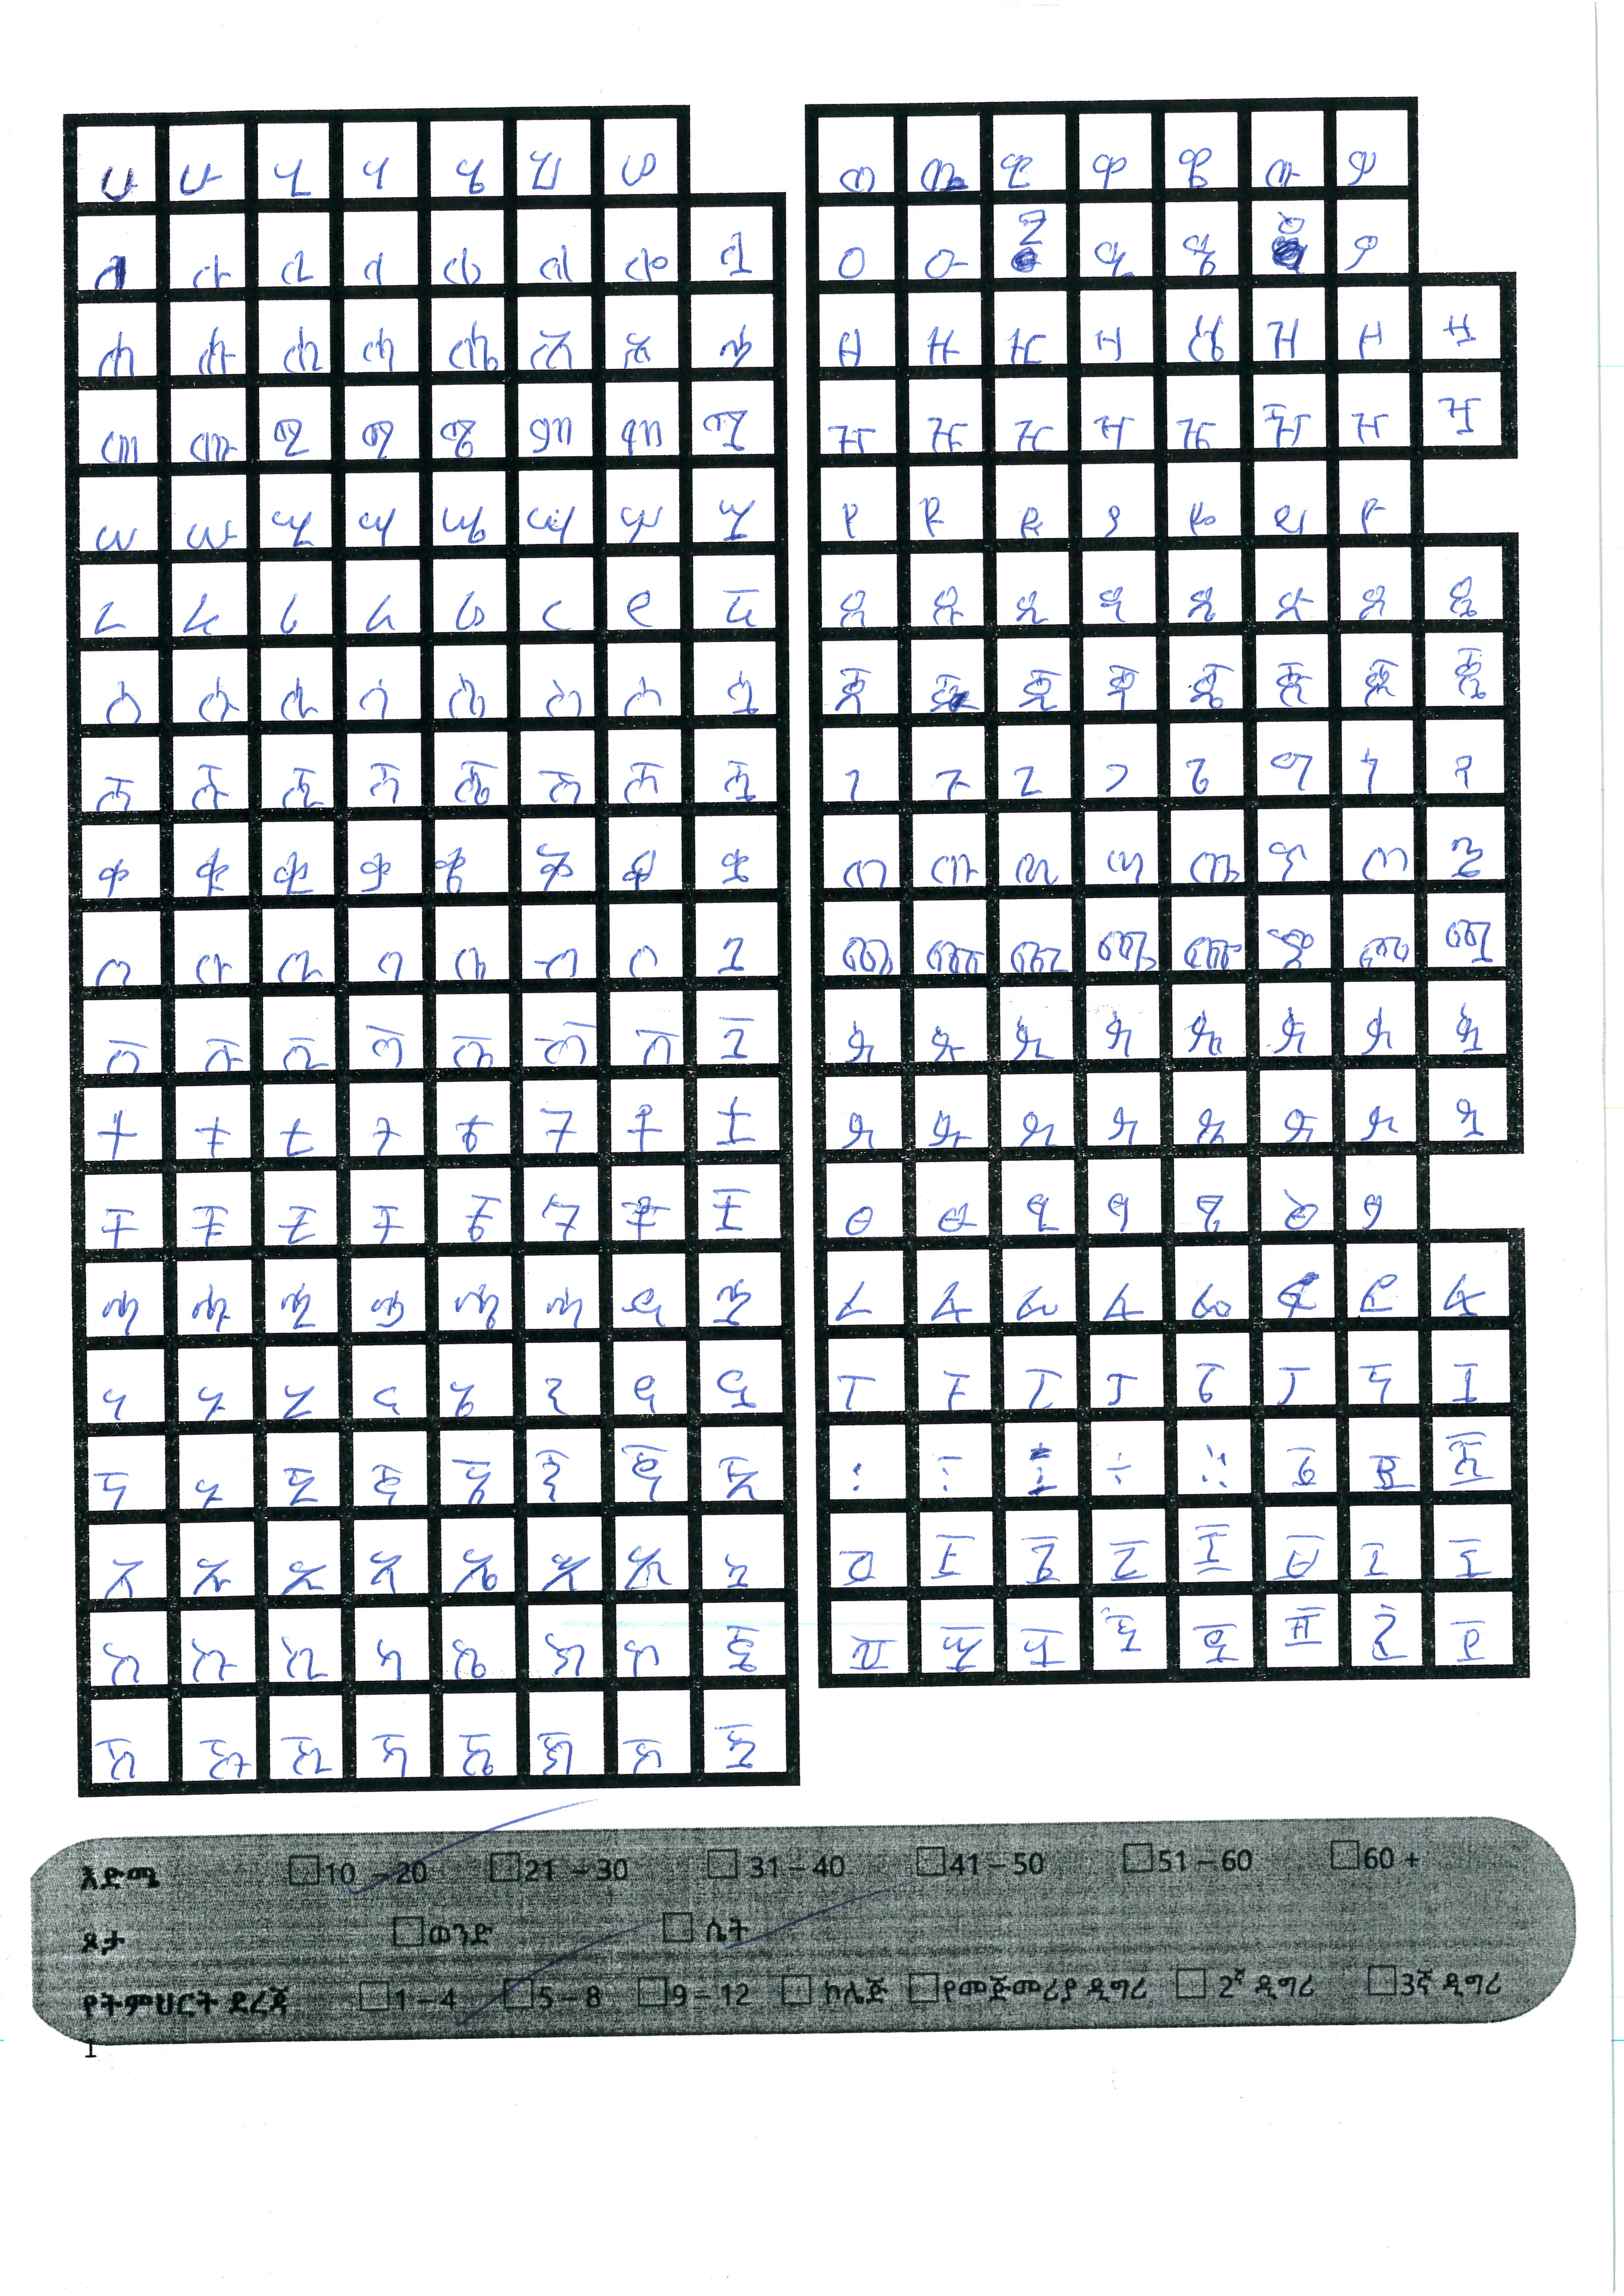 ሀ ሁ ሂ ሃ ሄ ህ ሆ
ለ ሉ ሊ ላ ሌ ል ሎ ሏ
ሐ ሑ ሒ ሓ ሔ ሕ ሖ ሗ
መ ሙ ሚ ማ ሜ ም ሞ ሟ
ሠ ሡ ሢ ሣ ሤ ሥ ሦ ሧ
ረ ሩ ሪ ራ ሬ ር ሮ ሯ
ሰ ሱ ሲ ሳ ሴ ስ ሶ ሷ
ሸ ሹ ሺ ሻ ሼ ሽ ሾ ሿ
ቀ ቁ ቂ ቃ ቄ ቅ ቆ ቋ
በ ቡ ቢ ባ ቤ ብ ቦ ቧ
ቨ ቩ ቪ ቫ ቬ ቭ ቮ ቯ
ተ ቱ ቲ ታ ቴ ት ቶ ቷ
ቸ ቹ ቺ ቻ ቼ ች ቾ ቿ
ኀ ኁ ኂ ኃ ኄ ኅ ኆ ኋ
ነ ኑ ኒ ና ኔ ን ኖ ኗ
ኘ ኙ ኚ ኛ ኜ ኝ ኞ ኟ
አ ኡ ኢ ኣ ኤ እ ኦ ኧ
ከ ኩ ኪ ካ ኬ ክ ኮ ኳ
ኸ ኹ ኺ ኻ ኼ ኽ ኾ ዃ
ወ ዉ ዊ ዋ ዌ ው ዎ
ዐ ዑ ዒ ዓ ዔ ዕ ዖ
ዘ ዙ ዚ ዛ ዜ ዝ ዞ ዟ
ዠ ዡ ዢ ዣ ዤ ዥ ዦ ዧ
የ ዩ ዪ ያ ዬ ይ ዮ
ደ ዱ ዲ ዳ ዴ ድ ዶ ዷ
ጀ ጁ ጂ ጃ ጄ ጅ ጆ ጇ
ገ ጉ ጊ ጋ ጌ ግ ጎ ጓ
ጠ ጡ ጢ ጣ ጤ ጥ ጦ ጧ
ጨ ጩ ጪ ጫ ጬ ጭ ጮ ጯ
ጰ ጱ ጲ ጳ ጴ ጵ ጶ ጷ
ጸ ጹ ጺ ጻ ጼ ጽ ጾ ጿ
ፀ ፁ ፂ ፃ ፄ ፅ ፆ
ፈ ፉ ፊ ፋ ፌ ፍ ፎ ፏ
ፐ ፑ ፒ ፓ ፔ ፕ ፖ ፗ
እድሜ 10 – 20 21 – 30 31 – 40 41 – 50 51 – 60 60 +
ጾታ ወንድ ሴት
የትምህርት ደረጃ 1 – 4 5 – 8 9 – 12 ኮሌጅ የመጀመሪያ ዲግሪ 2ኛ ዲግሪ 3ኛ ዲግሪ
1